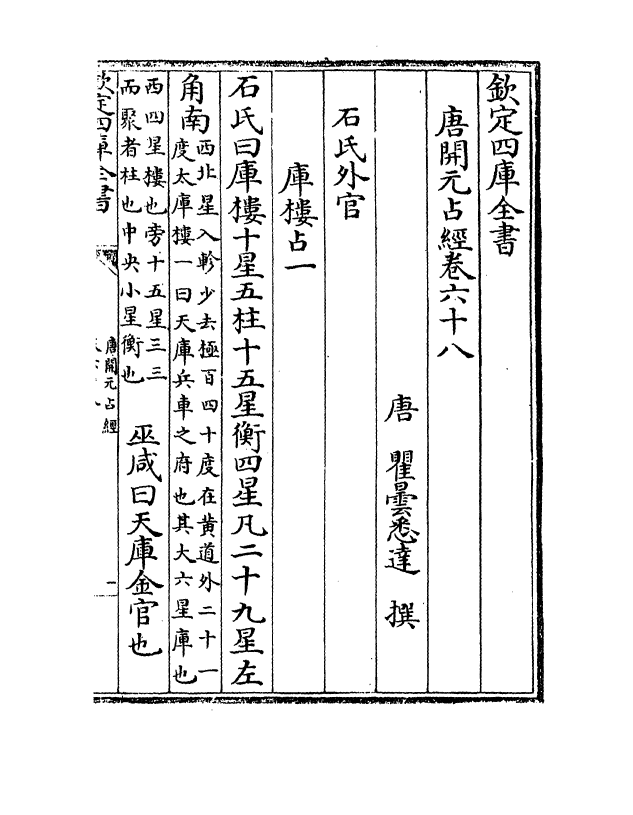 欽定四庫全書
唐開元占經卷六十八
唐 瞿曇悉達 撰
石氏外官
庫樓占一
石氏曰庫樓十星五柱十五星衡四星凡二十九星左
角南西北星入軫少去極百四十度在黄道外二十一
度太庫樓一曰天庫兵車之府也其大六星庫也
西四星樓也旁十五星三三
而聚者柱也中央小星衡也 巫咸曰天庫金官也
欽定四庫全書
唐開元占經
一